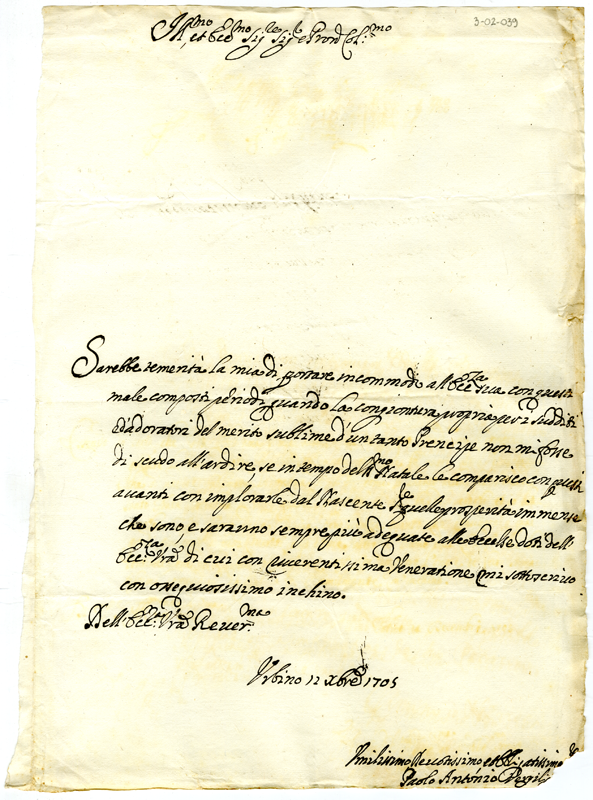 3-02-039
Ill.mo et Ecc.mo Sig.re Sig.re e Pron Col.mo
Sarebbe temerità la mia di portare incommodi all'Ecc.za sua con questi
male composti periodi, quando la congiontura propria per i sudditi
ed adoratori del merito sublime d'un tanto Prencipe non mi fosse
di scudo all'ardire, se in tempo del S.mo Natale le comparisco con questi
avanti con implorarle dal Nascente quelle prosperità immense
che sono e saranno sempre più adequate alle eccelse doti dell'
Ecc.za V.ra di cui con riverentissima Veneratione mi sottoscrivo
con ossequiosissimo inchino.
Dell'Ecc.za V.ra Rever.ma
Urbino 12 Xbre 1705
Umilissimo Devotissimo et Obligatissimo
Paolo Antonio